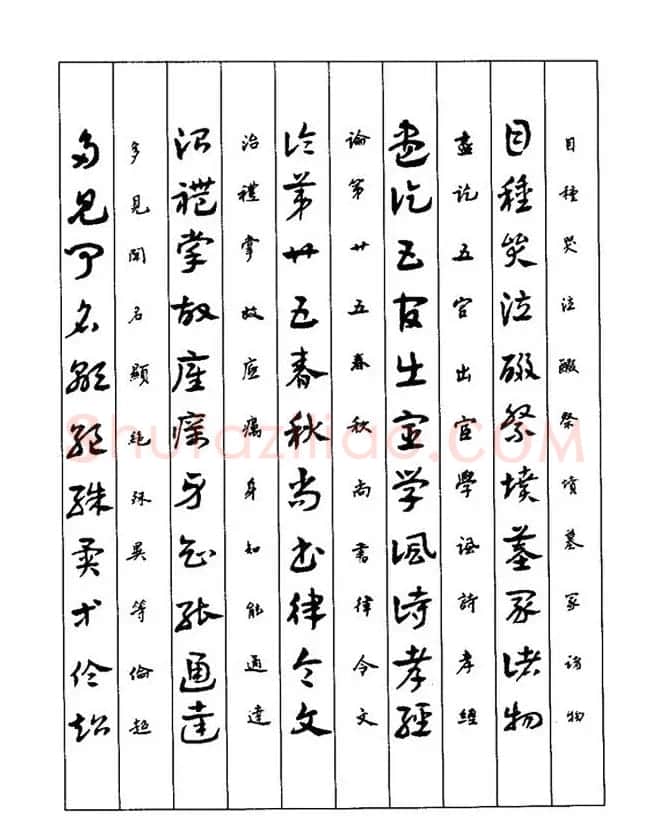 目種哭泣醊祭墳墓冢諸物
目種哭泣醊祭墳墓冢諸物
盡訖五官出宦學諷詩孝經
盡訖五官出宦學諷詩孝經
論第廿五春秋尚書律令文
論第廿五春秋尚書律令文
治禮掌故底癘身知能通達
治禮掌故底癘身知能通達
多見聞名顯絕殊異等倫超
多見聞名顯絕殊異等倫超
Shufaziliao.COM